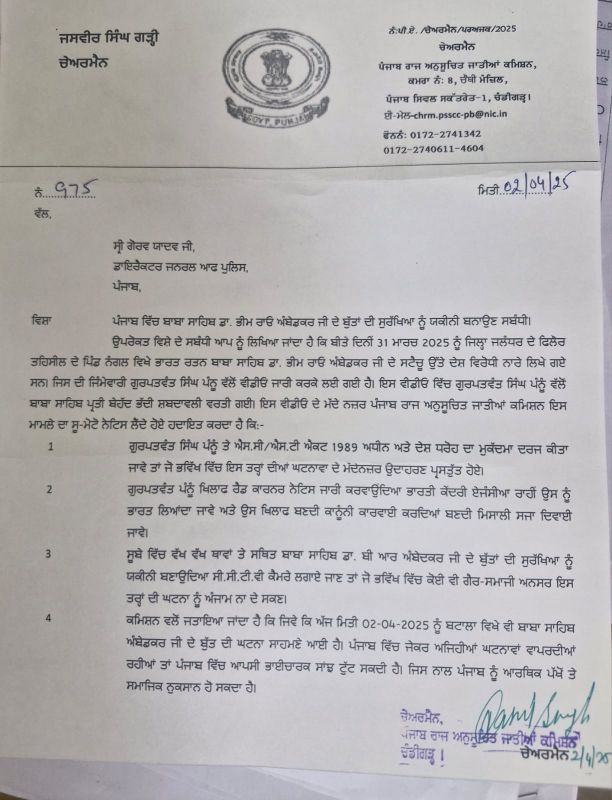 ਜਸਵੀਰ ਸਿੰਘ ਗੜ੍ਹੀ
ਚੇਅਰਮੈਨ
GOVT. PUNJAB
ਨੰ:ਪੀ.ਏ. /ਚੇਅਰਮੈਨ/ਪਰਅਜਕ/2025
ਚੇਅਰਮੈਨ
ਪੰਜਾਬ ਰਾਜ ਅਨੁਸੂਚਿਤ ਜਾਤੀਆਂ ਕਮਿਸ਼ਨ,
ਕਮਰਾ ਨੰ: 8, ਚੌਥੀ ਮੰਜ਼ਿਲ,
ਪੰਜਾਬ ਸਿਵਲ ਸਕੱਤਰੇਤ-1, ਚੰਡੀਗੜ੍ਹ।
ਈ-ਮੇਲ-chrm.psscc-pb@nic.in
ਫੋਨਨੰ: 0172-2741342
0172-2740611-4604
ਨੰ. 975
ਮਿਤੀ. 02/04/25
ਵੱਲ,
ਸ੍ਰੀ ਗੋਰਵ ਯਾਦਵ ਜੀ,
ਡਾਇਰੈਕਟਰ ਜਨਰਲ ਆਫ ਪੁਲਿਸ,
ਪੰਜਾਬ,
ਵਿਸ਼ਾ ਪੰਜਾਬ ਵਿੱਚ ਬਾਬਾ ਸਾਹਿਬ ਡਾ. ਭੀਮ ਰਾਓ ਅੰਬੇਡਕਰ ਜੀ ਦੇ ਬੁੱਤਾਂ ਦੀ ਸੁਰੱਖਿਆ ਨੂੰ ਯਕੀਨੀ ਬਨਾਉਣ ਸਬੰਧੀ।
ਉਪਰੋਕਤ ਵਿਸ਼ੇ ਦੇ ਸਬੰਧੀ ਆਪ ਨੂੰ ਲਿਖਿਆ ਜਾਂਦਾ ਹੈ ਕਿ ਬੀਤੇ ਦਿਨੀਂ 31 ਮਾਰਚ 2025 ਨੂੰ ਜਿਲ੍ਹਾ ਜਲੰਧਰ ਦੇ ਫਿਲੋਰ
ਤਹਿਸੀਲ ਦੇ ਪਿੰਡ ਨੰਗਲ ਵਿਖੇ ਭਾਰਤ ਰਤਨ ਬਾਬਾ ਸਾਹਿਬ ਡਾ. ਭੀਮ ਰਾਓ ਅੰਬੇਡਕਰ ਜੀ ਦੇ ਸਟੈਚੂ ਉੱਤੇ ਦੇਸ਼ ਵਿਰੋਧੀ ਨਾਰੇ ਲਿਖੇ ਗਏ
ਸਨ। ਜਿਸ ਦੀ ਜਿੰਮੇਵਾਰੀ ਗੁਰਪਤਵੰਤ ਸਿੰਘ ਪੰਨੂ ਵੱਲੋਂ ਵੀਡੀਓ ਜਾਰੀ ਕਰਕੇ ਲਈ ਗਈ ਹੈ। ਇਸ ਵੀਡੀਓ ਵਿੱਚ ਗੁਰਪਤਵੰਤ ਸਿੰਘ ਪੰਨੂੰ ਵੱਲੋਂ
ਬਾਬਾ ਸਾਹਿਬ ਪ੍ਰਤੀ ਬੇਹੱਦ ਭੱਦੀ ਸ਼ਬਦਾਵਲੀ ਵਰਤੀ ਗਈ। ਇਸ ਵੀਡੀਓ ਦੇ ਮੱਦੇ ਨਜ਼ਰ ਪੰਜਾਬ ਰਾਜ ਅਨੁਸੂਚਿਤ ਜਾਤੀਆਂ ਕਮਿਸ਼ਨ ਇਸ
ਮਾਮਲੇ ਦਾ ਸੂ-ਮੋਟੋ ਨੋਟਿਸ ਲੈਂਦੇ ਹੋਏ ਹਦਾਇਤ ਕਰਦਾ ਹੈ ਕਿ:-
1 ਗੁਰਪਤਵੰਤ ਸਿੰਘ ਪੰਨੂੰ ਤੇ ਐਸ.ਸੀ/ਐਸ.ਟੀ ਐਕਟ 1989 ਅਧੀਨ ਅਤੇ ਦੇਸ਼ ਧਰੋਹ ਦਾ ਮੁਕੱਦਮਾ ਦਰਜ ਕੀਤਾ
ਜਾਵੇ ਤਾਂ ਜੋ ਭਵਿੱਖ ਵਿੱਚ ਇਸ ਤਰ੍ਹਾਂ ਦੀਆਂ ਘਟਨਾਵਾ ਦੇ ਮੱਦੇਨਜ਼ਰ ਉਦਾਹਰਣ ਪ੍ਰਸਤੁੱਤ ਹੋਏ।
2 ਗੁਰਪਤਵੰਤ ਪੰਨੂੰ ਖਿਲਾਫ ਰੈਡ ਕਾਰਨਰ ਨੋਟਿਸ ਜਾਰੀ ਕਰਵਾਉਂਦਿਆ ਭਾਰਤੀ ਕੇਂਦਰੀ ਏਜੰਸੀਆ ਰਾਹੀਂ ਉਸ ਨੂੰ
ਭਾਰਤ ਲਿਆਂਦਾ ਜਾਵੇ ਅਤੇ ਉਸ ਖਿਲਾਫ ਬਣਦੀ ਕਾਨੂੰਨੀ ਕਾਰਵਾਈ ਕਰਦਿਆਂ ਬਣਦੀ ਮਿਸਾਲੀ ਸਜਾ ਦਿਵਾਈ
ਜਾਵੇ।
3 ਸੂਬੇ ਵਿੱਚ ਵੱਖ ਵੱਖ ਥਾਵਾਂ ਤੇ ਸਥਿਤ ਬਾਬਾ ਸਾਹਿਬ ਡਾ. ਬੀ ਆਰ ਅੰਬੇਦਕਰ ਜੀ ਦੇ ਬੁੱਤਾਂ ਦੀ ਸੁਰੱਖਿਆ ਨੂੰ
ਯਕੀਨੀ ਬਣਾਉਦਿਆ ਸੀ.ਸੀ.ਟੀ.ਵੀ ਕੈਮਰੇ ਲਗਾਏ ਜਾਣ ਤਾਂ ਜੋ ਭਵਿੱਖ ਵਿੱਚ ਕੋਈ ਵੀ ਗੈਰ-ਸਮਾਜੀ ਅਨਸਰ ਇਸ
ਤਰ੍ਹਾਂ ਦੀ ਘਟਨਾ ਨੂੰ ਅੰਜਾਮ ਨਾ ਦੇ ਸਕਣ।
4 ਕਮਿਸ਼ਨ ਵਲੋਂ ਜਤਾਇਆ ਜਾਂਦਾ ਹੈ ਕਿ ਜਿਵੇ ਕਿ ਅੱਜ ਮਿਤੀ 02-04-2025 ਨੂੰ ਬਟਾਲਾ ਵਿਖੇ ਵੀ ਬਾਬਾ ਸਾਹਿਬ
ਅੰਬੇਡਕਰ ਜੀ ਦੇ ਬੁੱਤ ਦੀ ਘਟਨਾ ਸਾਹਮਣੇ ਆਈ ਹੈ। ਪੰਜਾਬ ਵਿੱਚ ਜੇਕਰ ਅਜਿਹੀਆਂ ਘਟਨਾਵਾਂ ਵਾਪਰਦੀਆਂ
ਰਹੀਆਂ ਤਾਂ ਪੰਜਾਬ ਵਿੱਚ ਆਪਸੀ ਭਾਈਚਾਰਕ ਸਾਂਝ ਟੁੱਟ ਸਕਦੀ ਹੈ। ਜਿਸ ਨਾਲ ਪੰਜਾਬ ਨੂੰ ਆਰਥਿਕ ਪੱਖੋਂ ਤੇ
ਸਮਾਜਿਕ ਨੁਕਸਾਨ ਹੋ ਸਕਦਾ ਹੈ।
ਚੇਅਰਮੈਨ,
ਪੰਜਾਬ ਰਾਜ ਅਨੁਸੂਚਿਤ ਜਾਤੀਆਂ ਕਮਿਸ਼ਨ
ਚੰਡੀਗੜ੍ਹ।
ਚੇਅਰਮੈਨ 2/4/25